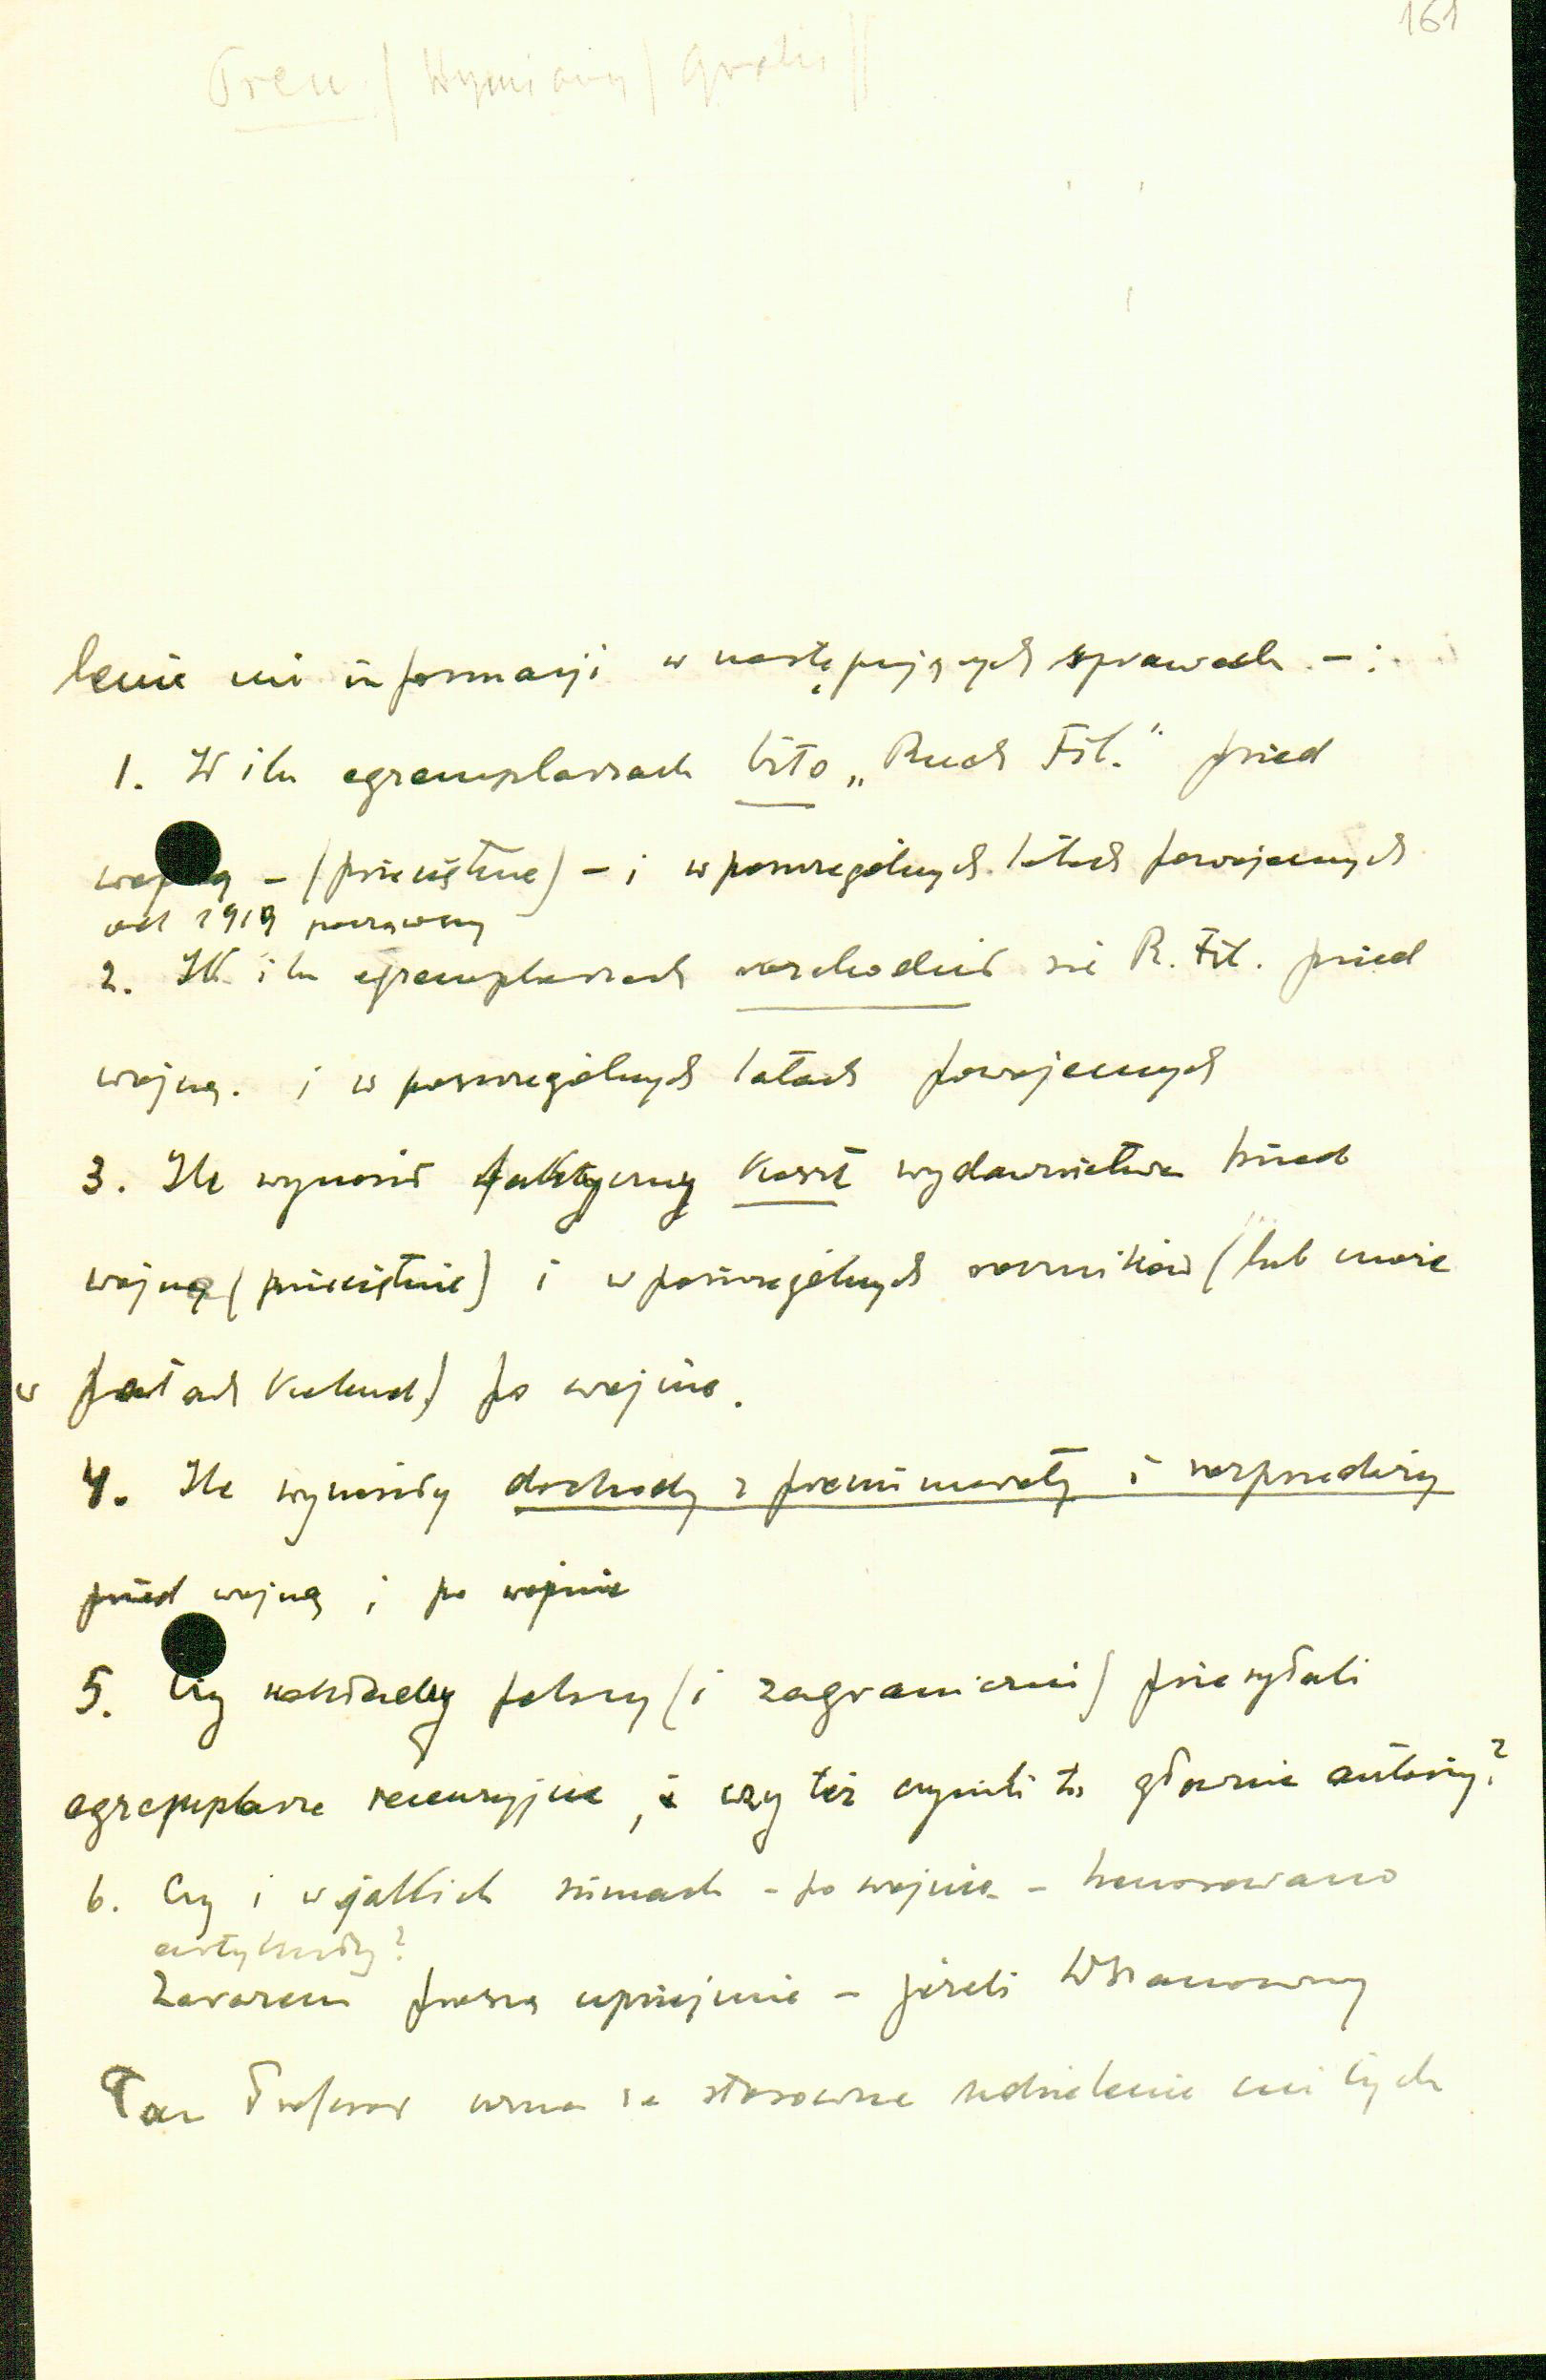 161
Pren / Wymiany / Gratis //
lenie mi informacji w następujących sprawach. - :
1. W ilu egzemplarzach bito „Ruch Fil." przed
wojną - (przeciętnie) - i w poszczególnych latach powojennych
od 1919 począwszy
2. W ilu egzemplarzach rozchodził się R. Fil. przed
wojną. i w poszczególnych latach powojennych
3. Ile wynosił faktyczny koszt wydawnictwa przed
wojną (przeciętnie) i w poszczególnych roczników (lub może
w po wojnie.
4. Ile wynosiły dochody z prenumeraty i rozprzedaży
przed wojną i po wojnie
5. Czy nakładcy polscy (i zagraniczni) przesyłali
egzemplarze recenzyjne, czy też czynili to głównie autorzy?
6. Czy i w jakich sumach - po wojnie - honorowano
artykuły?
Zarazem proszę uprzejmie - jeżeli WSzanowny
Pan Profesor uzna za stosowne udzielenie mi tych